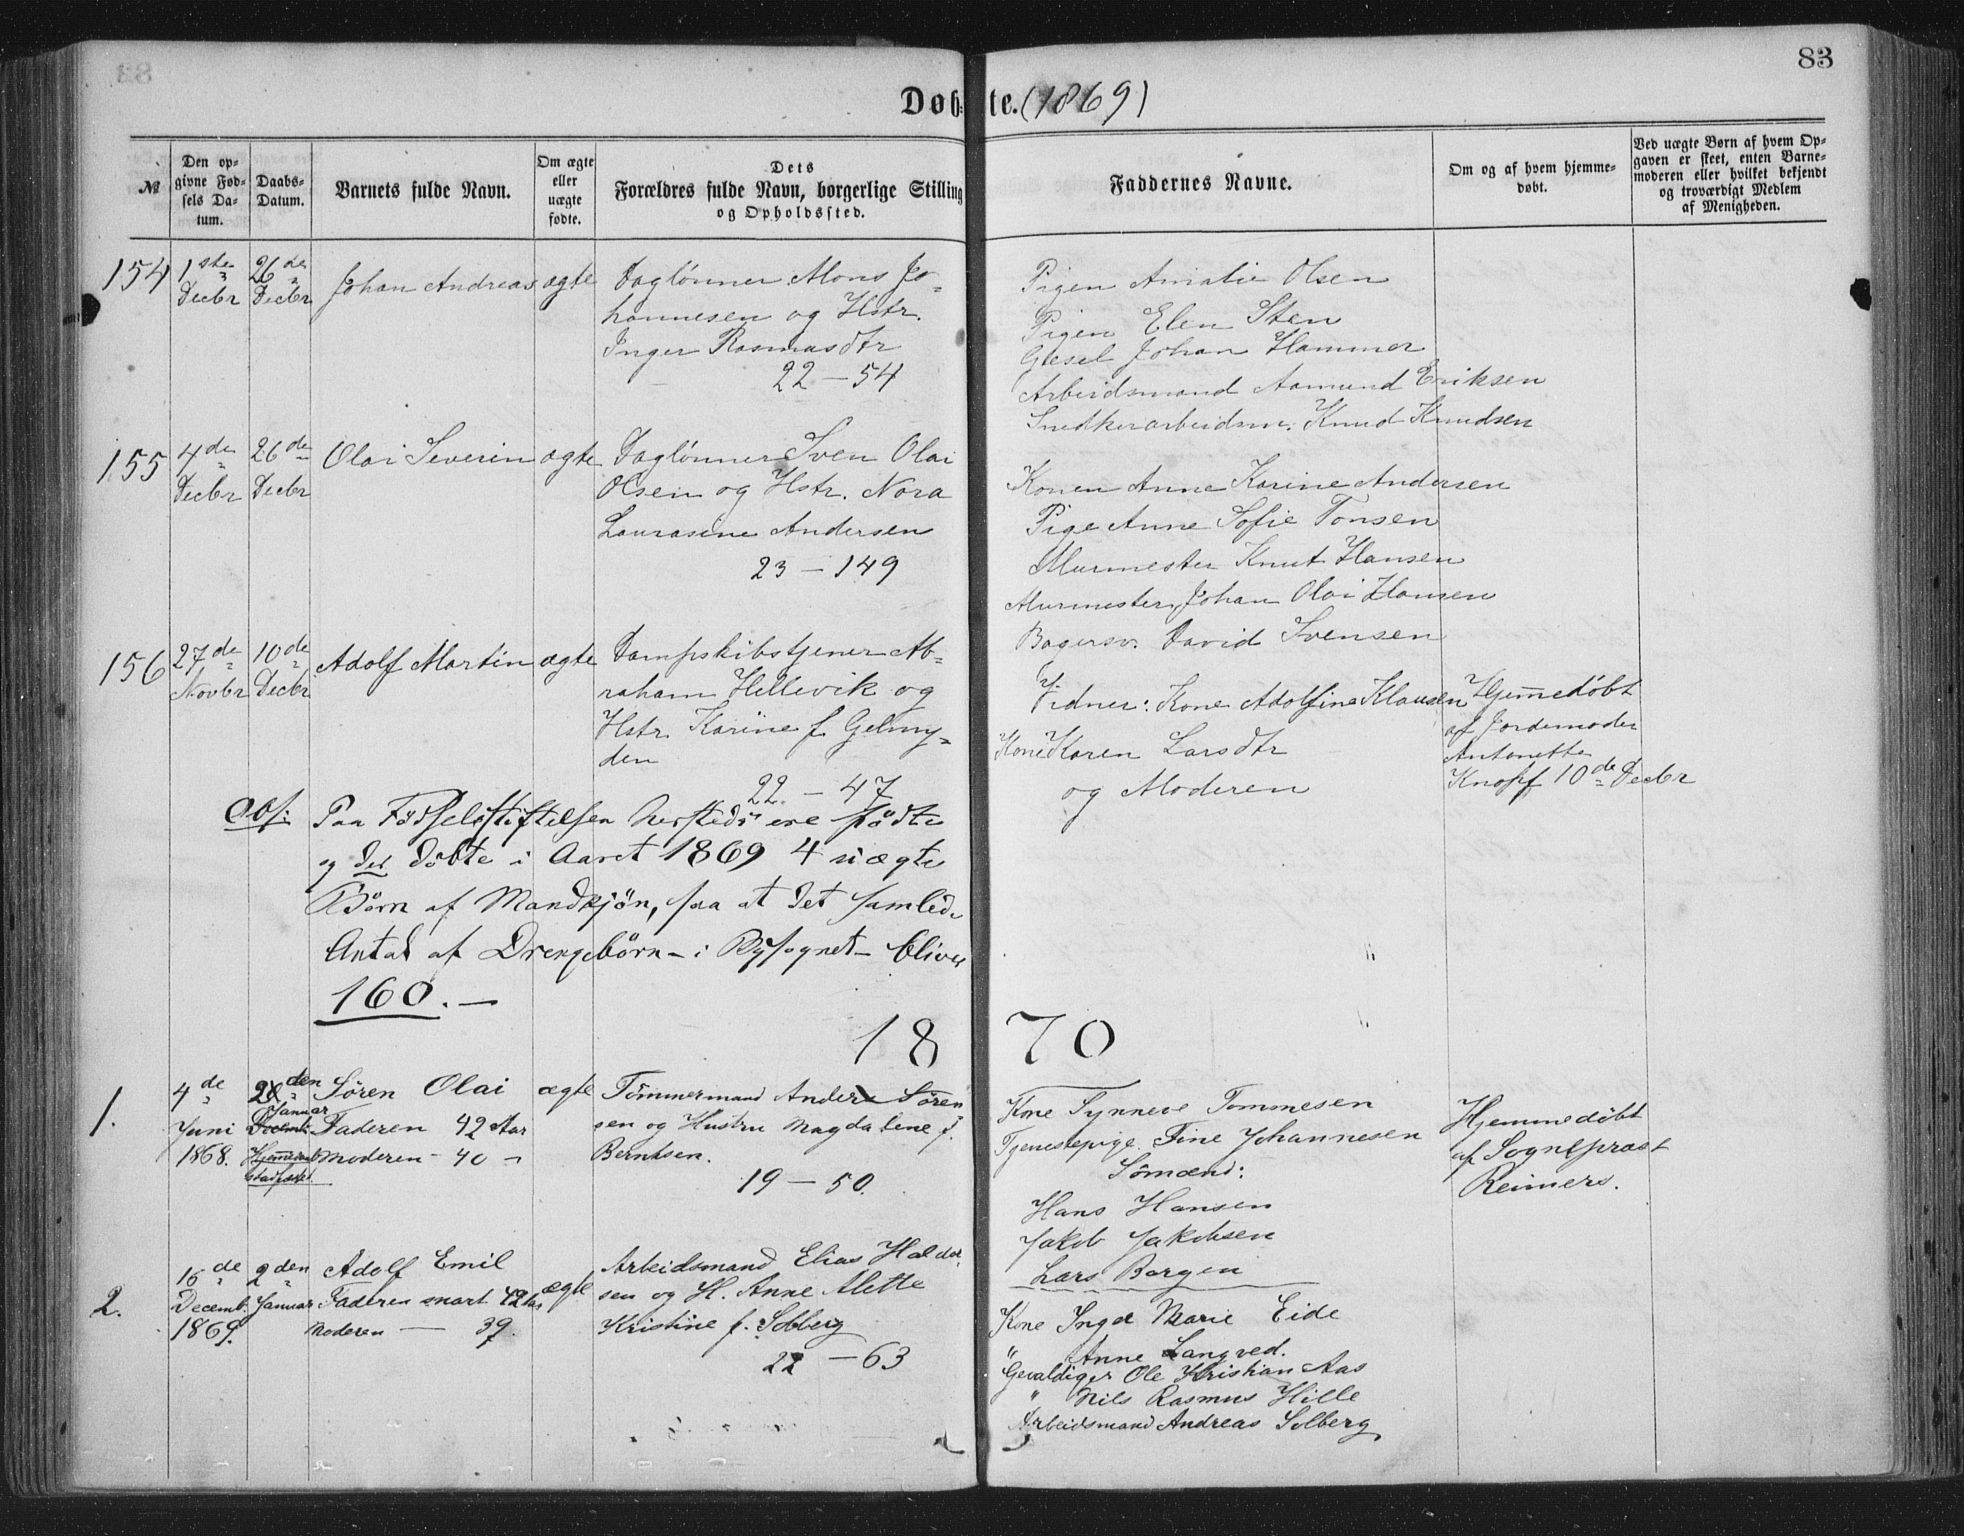 83
Døbte. (1869)
№
Den opgivne Fødsels Datum.
Daabs-Datum.
Barnets fulde Navn.
Om ægte eller uægte fødte.
Dets Forældres fulde Navn, borgerlige Stilling og Opholdssted.
Faddernes Navne.
Om og af hvem hjemmedøbt.
Ved uægte Børn af hvem Opgaven er skeet, enten Barnemoderen eller hvilket bekjendt og troværdigt Medlem af Menigheden.
154
1ste Decbr
26de Decbr
Johan Andreas
ægte
Daglönner Mons Jo-
hannesen og Hstr.
Inger Rasmusdtr
22 - 54
Pigen Amalie Olsen
Pigen Elen Sten
Gesel Johan Hammer
Arbeidsmand Aamund Eriksen
Snedkerarbeidsm. Knud Knudsen
155
4de Decbr
26de Decbr
Olai Severin
ægte
Daglönner Sven Olai
Olsen og Hstr. Nora
Laurasine Andersen
23 - 149
Konen Anne Karine Andersen
Pige Anne Sofie Tonsen
Murmester Knut Hansen
Murmester Johan Olai Hansen
Bagersv. David Svensen
156
27de Novbr
10de Decbr
Adolf Martin
ægte
Dampskibstjener Ab-
raham Hellevik og
Hstr. Karine f. Gelmy-
den
22. - 47
Vidner: Kone Adolfine Klausen
Kone Karen Larsdtr
og Moderen
Hjemmedøbt
af Jordemoder
Antonette
Knoff 10de Decbr
Obs:
Paa Fødselsstiftelsen hersteds ere fødte
og der døbte i Aaret 1869 4 uægte
Børn af Mandkjøn, saa at det samlede
Antal af Drengebørn - i Bysognet - bliver
160. -
1870
1.
4de Juni 1868.
28den
Januar
Decemb.
Hjemmed.
stadfæstet
Søren Olai
Faderen 42 Aar
Moderen - 40 -
ægte
Tömmermand Anders Sören
sen og Hustru Magdalene f.
Berntsen.
19 - 50.
Kone Synneve Tommesen
Tjenestepige Tine Johannesen
Sömænd:
Hans Hansen
Jakob Jakobsen
Lars Borgen
Hjemmedøbt
af Sogneprest
Reimers.
2.
16de Decemb. 1869.
2den Januar
Adolf Emil
Faderen snart 42 Aar
Moderen - 39.
ægte
Arbeidsmand Elias Haldor
sen og H. Anne Alette
Kristine f. Solberg
22 - 63
Kone Inger Marie Eide
" Anne Langved.
Gevaldiger Ole Kristian Aas
" Nils Rasmus Hille
Arbeidsmand Andreas Solberg